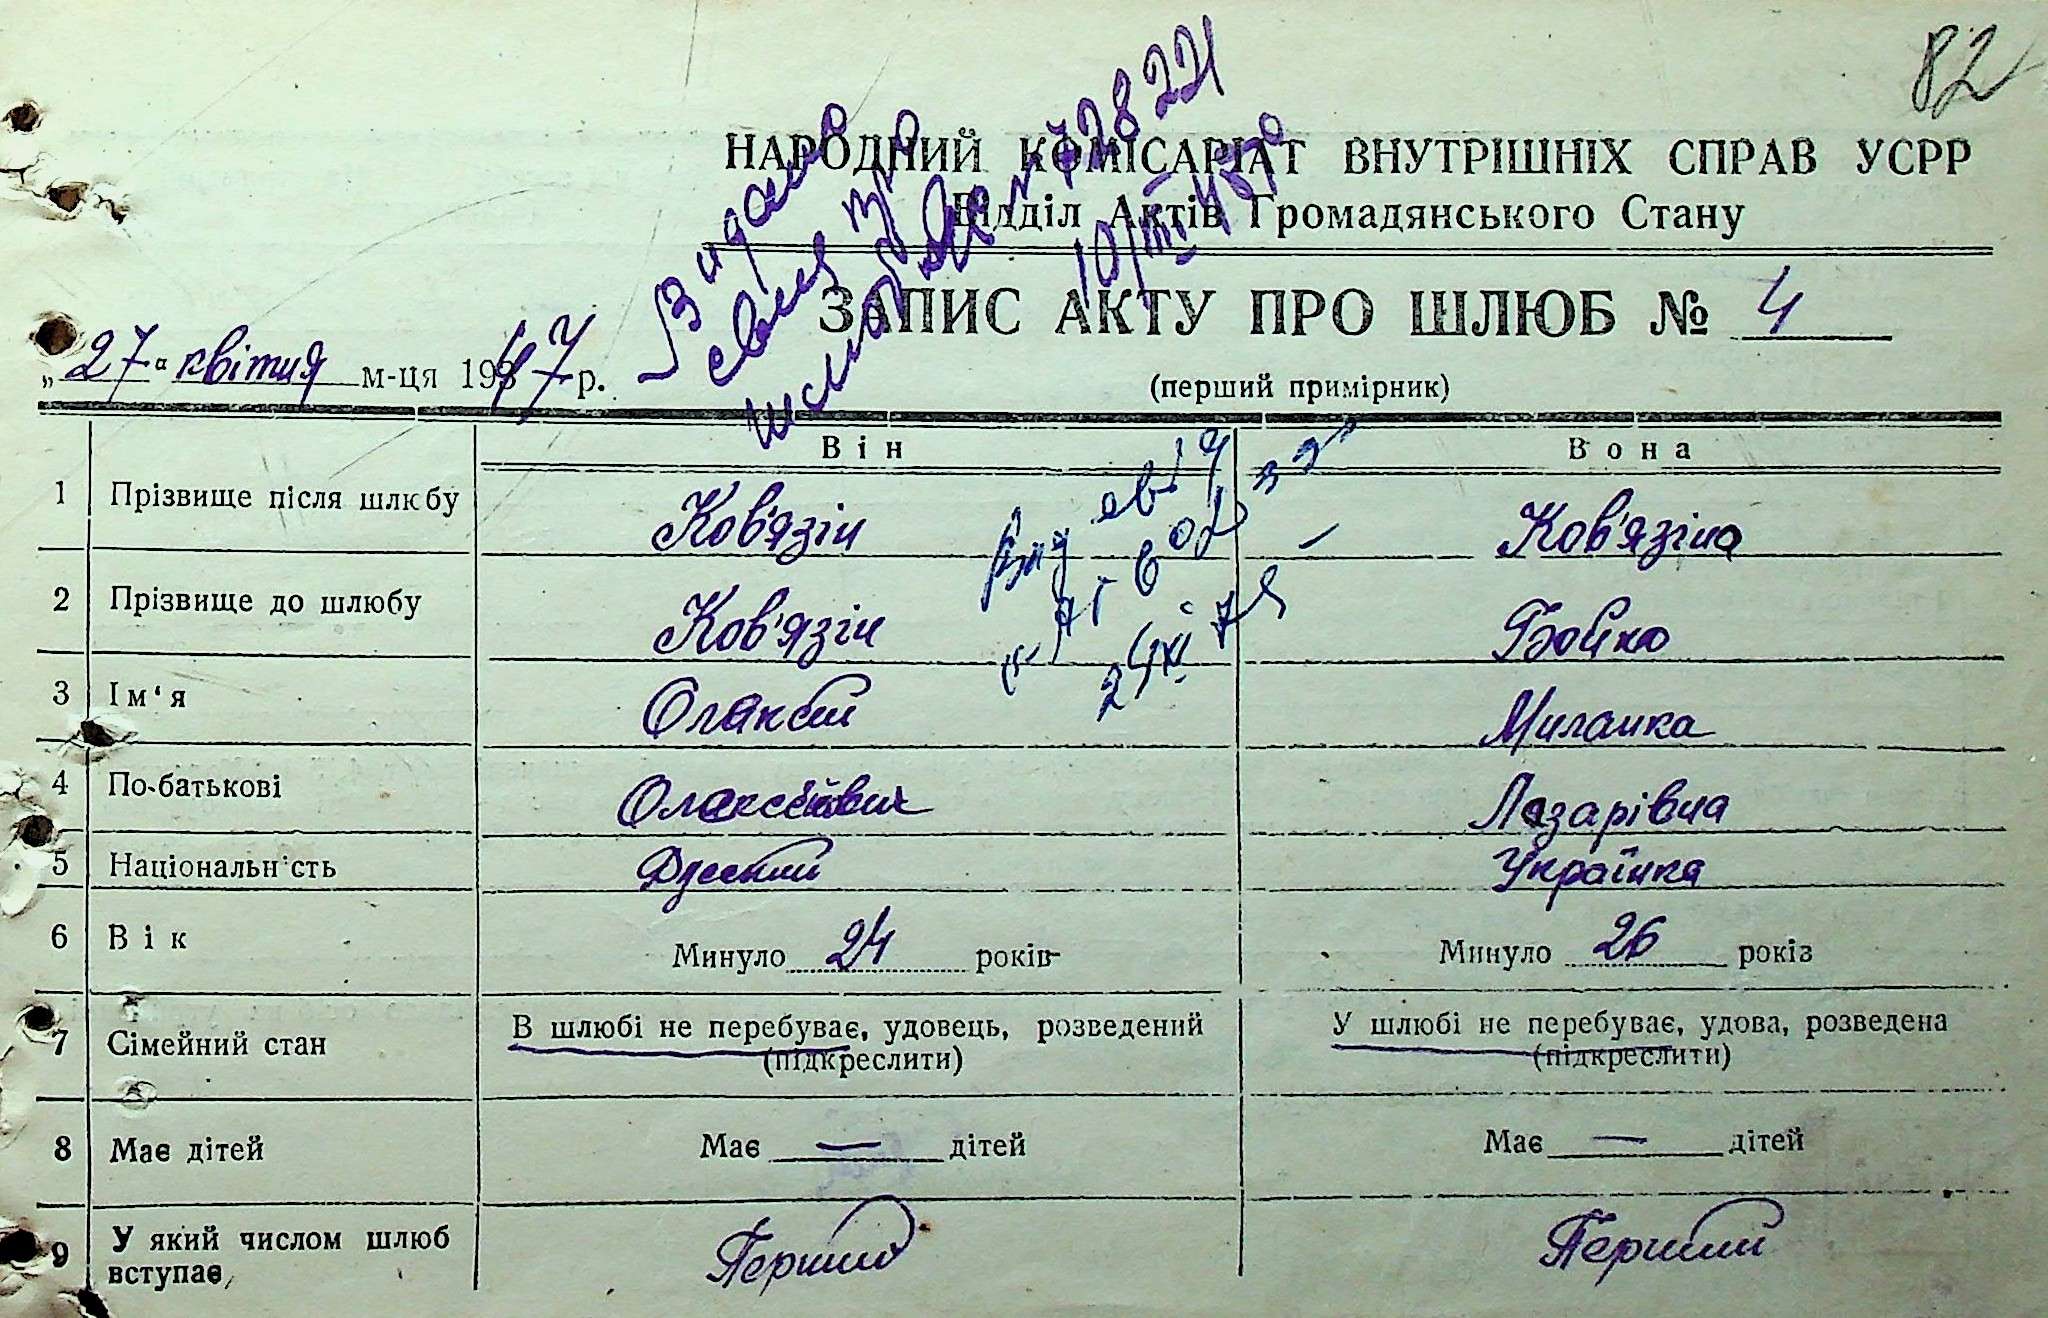 82
НАРОДНИЙ КОМІСАРІАТ ВНУТРІШНІХ СПРАВ УСРР
Відділ Актів Громадянського Стану
ЗАПИС АКТУ ПРО ШЛЮБ № 4
„27“ квітня м-ця 1947 р.
(перший примірник)
Він Вона
1 Прізвище після шлюбу Ков'язін Ков'язіна
2 Прізвище до шлюбу Ков'язін Бойко
3 Ім‘я Олаксій Миланка
4 По-батькові Олаксєйович Лазарівна
5 Національність Русский Українка
6 Вік Минуло 24 років Минуло 26 років
7 Сімейний стан В шлюбі не перебуває, удовець, розведений У шлюбі не перебуває, удова, розведена
(підкреслити) (підкреслити)
8 Має дітей Має — дітей Має — дітей
9 У який числом шлюб вступає Перший Перший